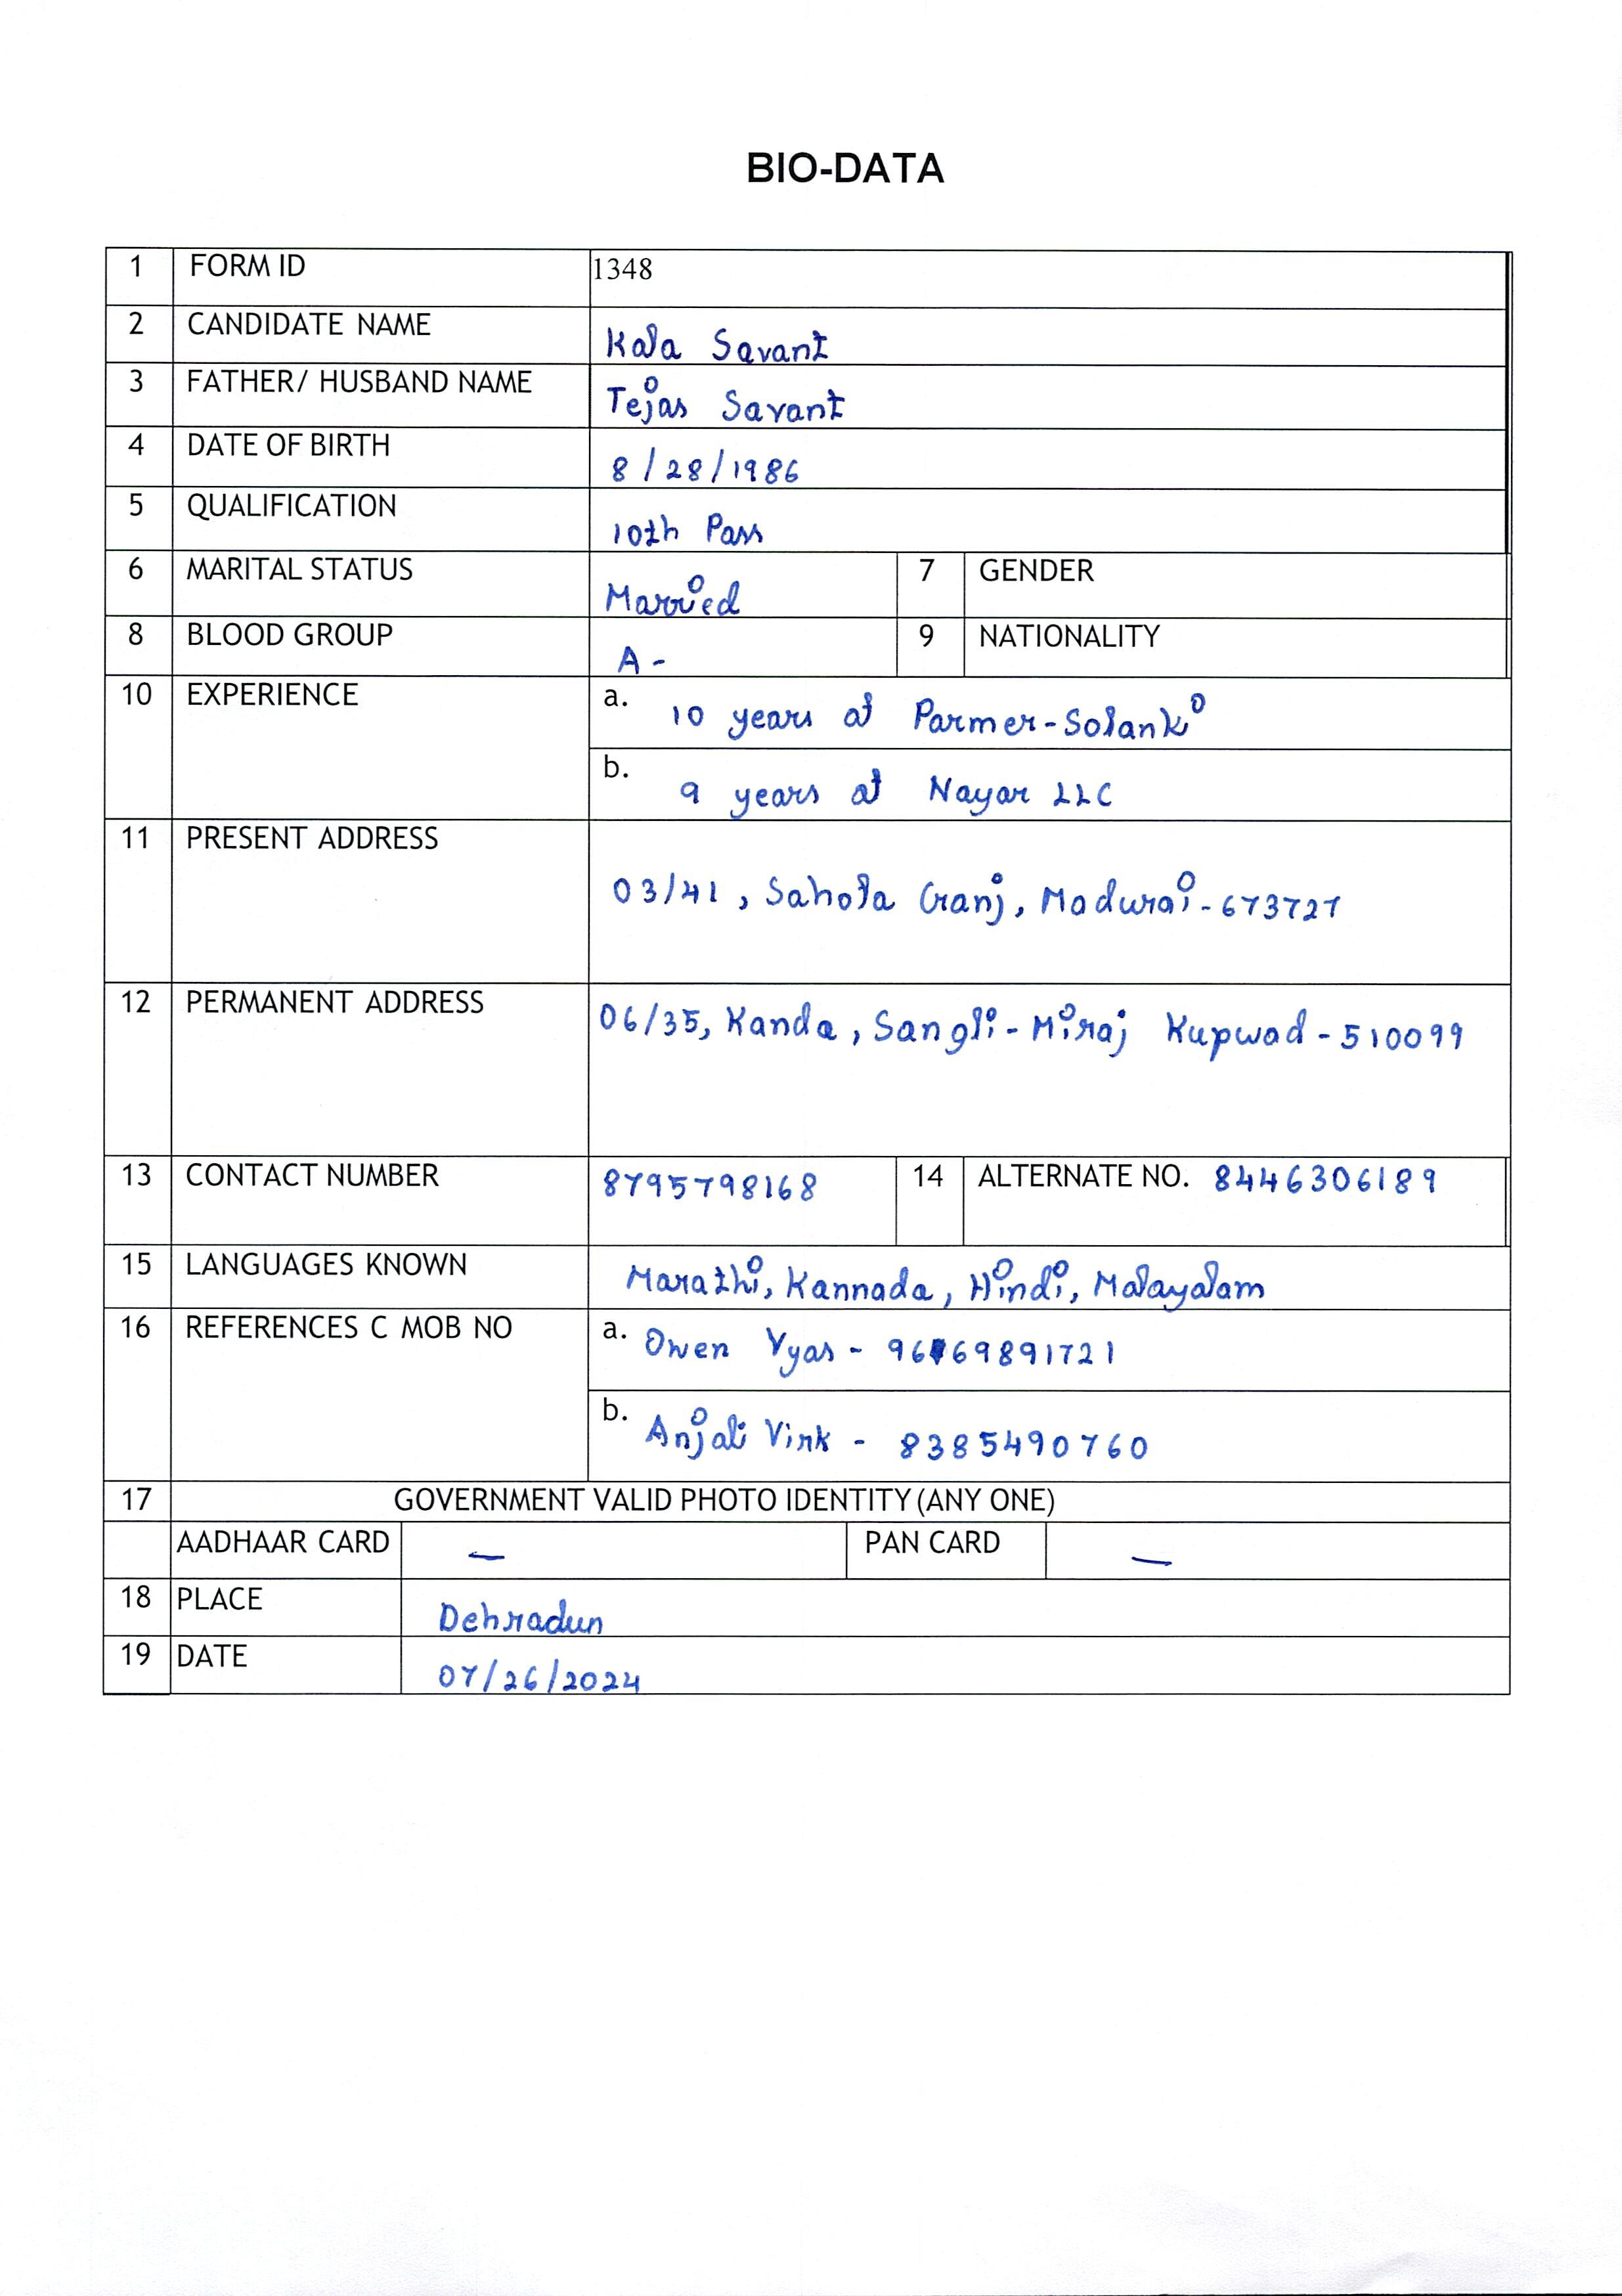 BIO-DATA
1 FORM ID 1348
2 CANDIDATE NAME Kala Savant
3 FATHER/ HUSBAND NAME Tejas Savant
4 DATE OF BIRTH 8/28/1986
5 QUALIFICATION 10th Pass
6 MARITAL STATUS Married 7 GENDER
8 BLOOD GROUP A- 9 NATIONALITY
10 EXPERIENCE a. 10 years at Parmer-Solanki
b. 9 years at Nayar LLC
11 PRESENT ADDRESS
03/41, Sahota Ganj, Madurai-673727
12 PERMANENT ADDRESS 06/35, Kanda, Sangli-Miraj Kupwad-510099
13 CONTACT NUMBER 8795798168 14 ALTERNATE NO. 8446306189
15 LANGUAGES KNOWN Marathi, Kannada, Hindi, Malayalam
16 REFERENCES C MOB NO a. Owen Vyas -
b. Anjali Virk - 8385490760
17 GOVERNMENT VALID PHOTO IDENTITY (ANY ONE)
AADHAAR CARD — PAN CARD —
18 PLACE Dehradun
19 DATE 07/26/2024